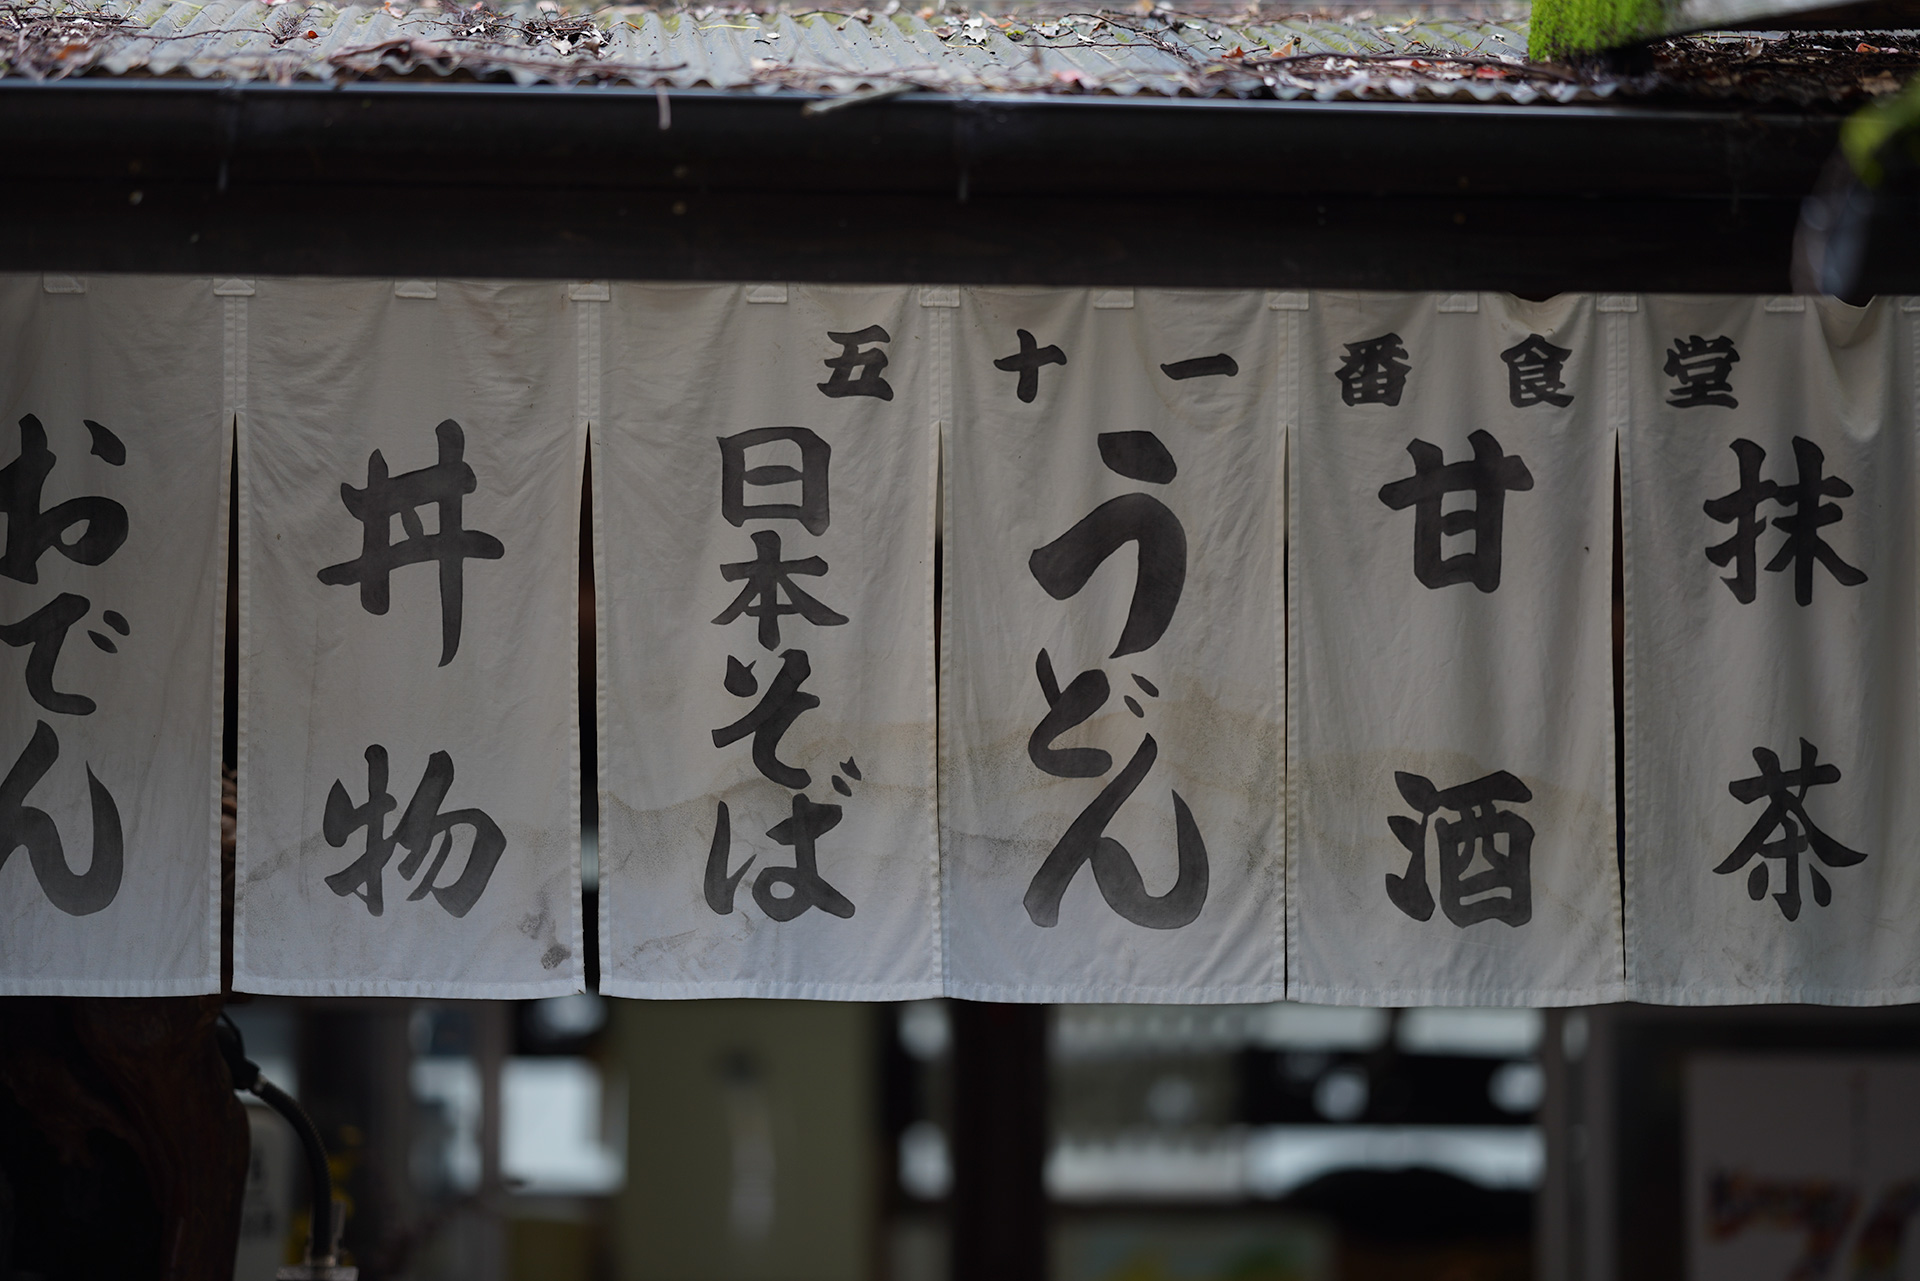 五十一番食堂
抹茶
甘酒
うどん
日本そば
丼物
おでん